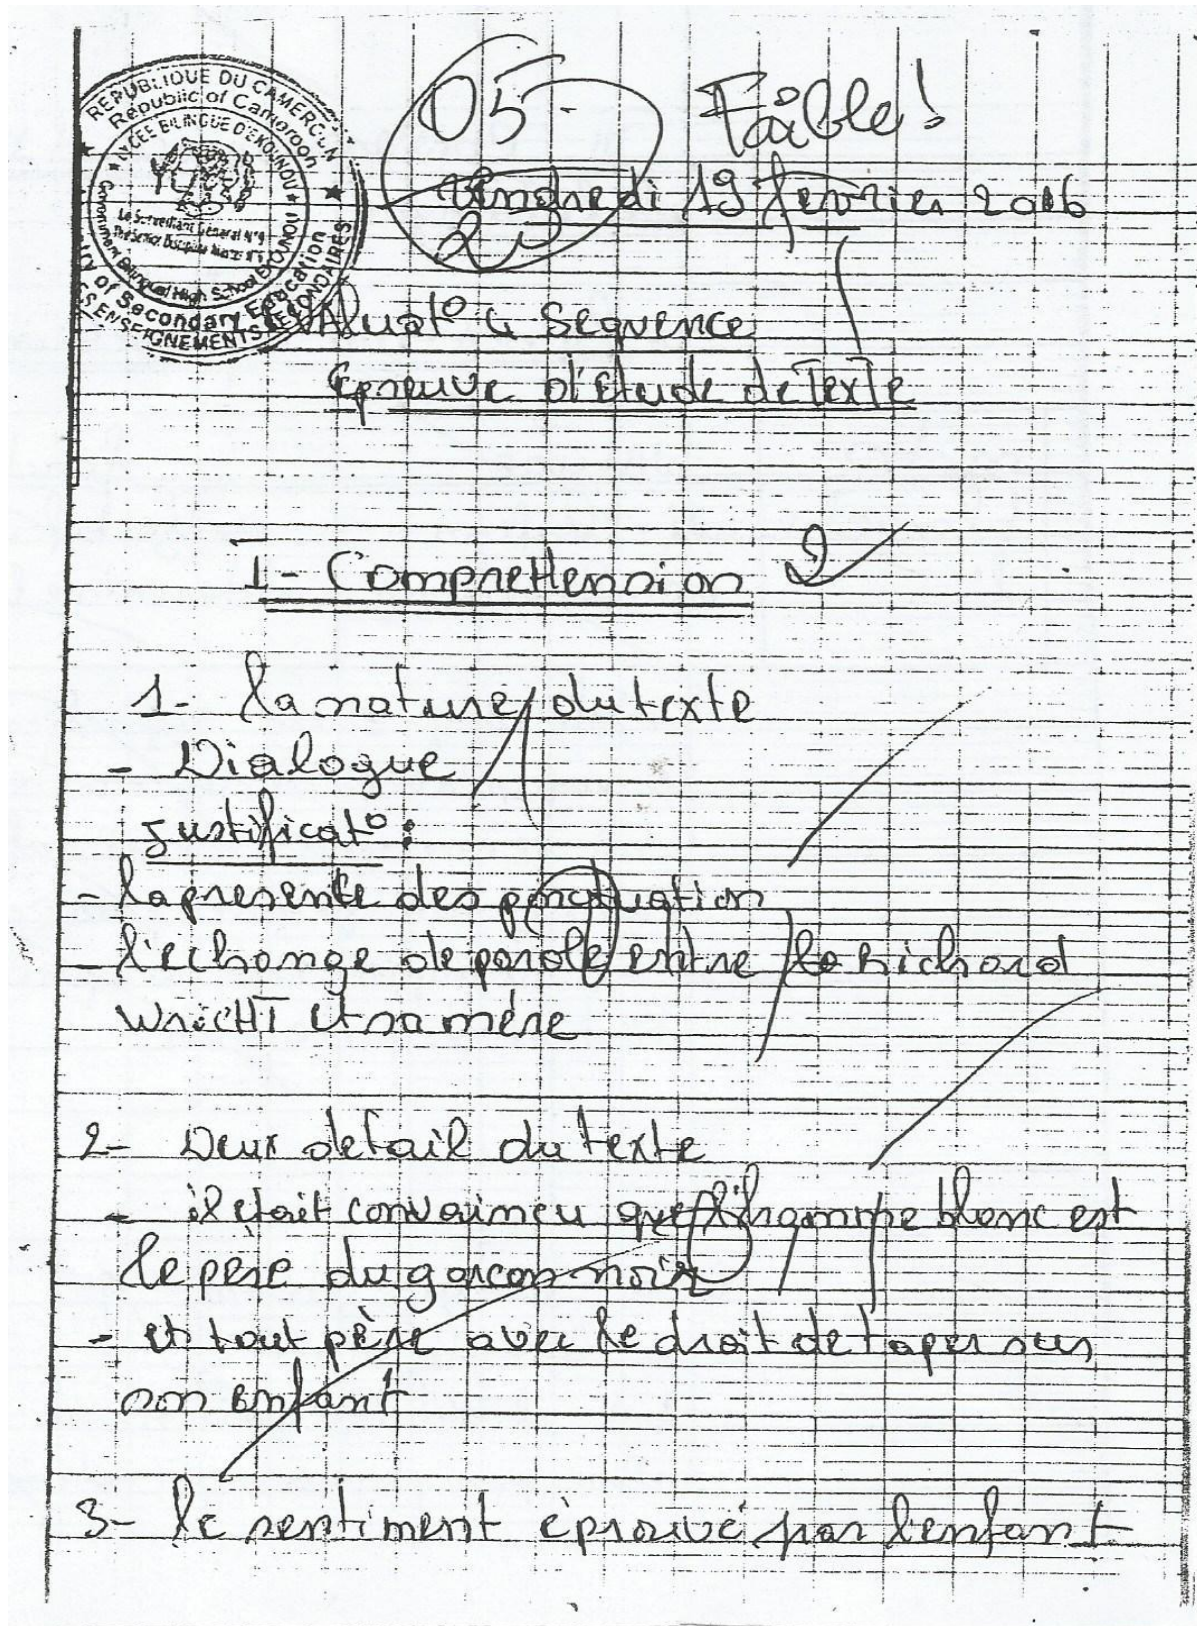 REPUBLIQUE DU CAMEROUN
Republic of Cameroon
LYCEE BILINGUE D'EKOUNOU
Le Surveillant Général N°9
Government Bilingual High School EKOUNOU
of Secondary Education
ES ENSEIGNEMENTS SECONDAIRES
05
20
Faible!
Vendredi 19 fevrier 2016
EVAluat° 4 Sequence
Epreuve d'Etude de Texte
I- CompreHension 2
1- la nature du texte
- Dialogue
justificat° :
- la presente des ponctuation
- l'echange de parole entre le Richard
WricHT et sa mère
2- Deux detail du texte
- il etait convaincu que l'homme blanc est
le père du garcon noir
- et tout père avec le droit de taper sur
son enfant
3- le sentiment éprouvé par l'enfant